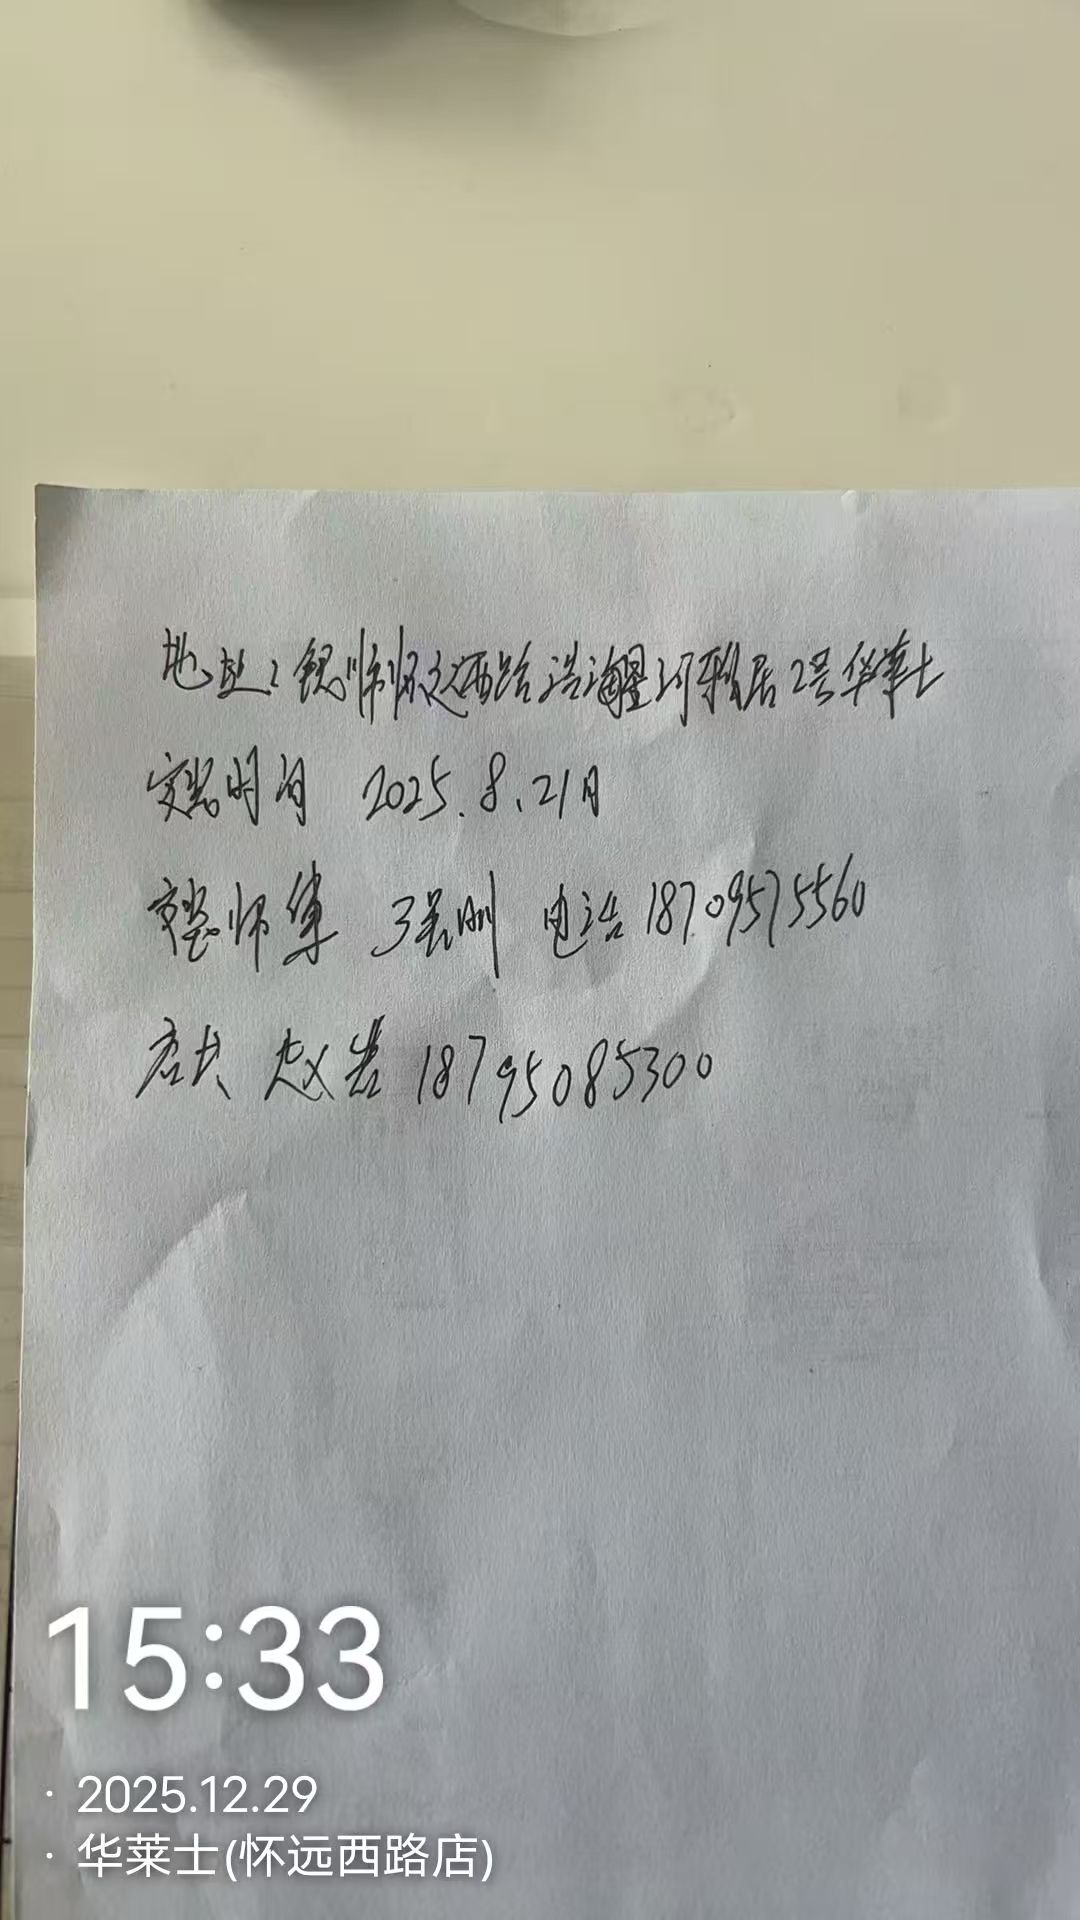 地址：银川市怀远西路浩海星河雅居2号华莱士
安装时间 2025.8.21日
安装师傅 马吴刚 电话 18709575560
店长 赵岩 18795085300
15:33
· 2025.12.29
· 华莱士(怀远西路店)